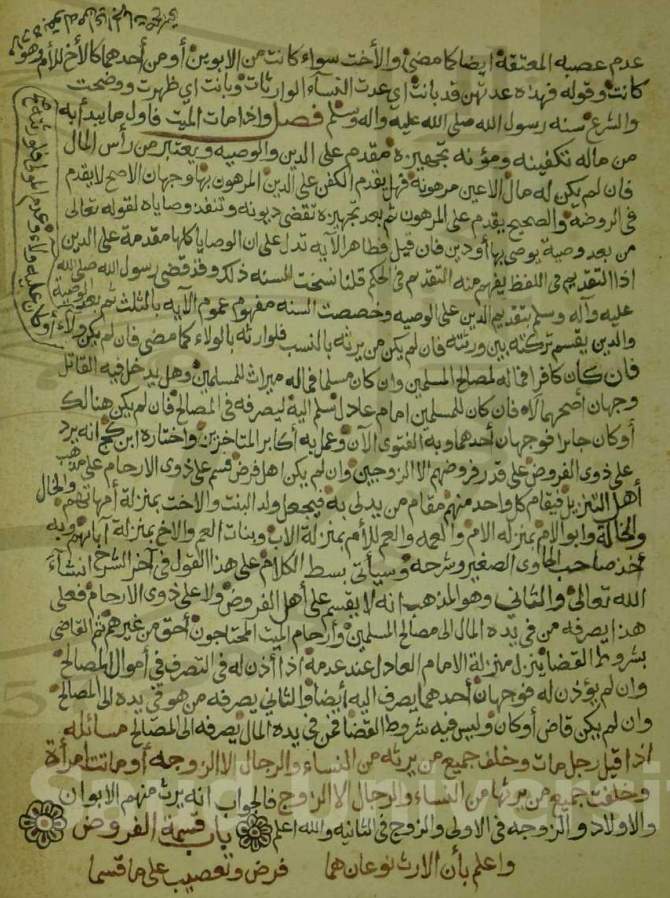 عدم عصبه المعتقة ايضا كما مضى والأخت سواء كانت من الابوين أو من أحدهما كالأخ للأم وهو
كانت وقوله فهذه عدتهن قد بانت اي عدت النسآء الوارثات وبانت اي ظهرت ووضحت
والشرع سنه رسول الله صلى الله عليه واله وسلم فصل واذا مات الميت فأول ما يبدأ به
من ماله تكفينه ومؤنه تجهيزه مقدم على الدين والوصيه ويعتبر من رأس المال
فان لم يكن له مال الا عين مرهونة فهل يقدم الكفن على الدين المرهون بها وجهان الاصح لا يقدم
فى الروضه والصحيح يقدم على المرهون ثم بعد تجهيزه تقضى ديونه وتنفذ وصاياه لقوله تعالى
من بعد وصية يوصى بها أو دين فان قيل فظاهر الآيه تدل على ان الوصايا كلها مقدمة على الدين
اذا التقديم فى اللفظ يفهم منه التقديم فى الحكم قلنا نسخت السنه ذلك وقد قضى رسول الله صلى الله
عليه وآله وسلم بتقديم الدين على الوصيه وخصصت السنه مفهوم عموم الآيه بالثلث ثم بعد الوصية
والدين يقسم تركته بين ورثته فان لم يكن من يرثه بالنسب فلوارثه بالولاء كما مضى فان لم يكن ولاء
فان كان كافرا فماله لمصالح المسلمين وان كان مسلما فماله ميراث للمسلمين وهل يدخل فيه القاتل
وجهان أصحهما لا فان كان للمسلمين امام عادل سلم اليه ليصرفه فى المصالح فان لم يكن هنالك
أو كان جايرا فوجهان أحدهما وبه الفتوى الآن وعمل به أكابر المتاخرين واختاره ابن كج انه يرد
على ذوى الفروض على قدر فروضهم الا الزوجين وان لم يكن اهل فرض قسم على ذوى الارحام على مذهب
أهل التنزيل فيقام كل واحد منهم مقام من يدلى به فيجعل ولد البنت والاخت بمنزلة أمهاتهم والخال
والخالة وابو الام بمنزله الام والعمه والعم للأم بمنزلة الاب وبنات العم والاخ بمنزلة آبائهم وبه
أخذ صاحب الحاوى الصغير وشرحه وسيأتى بسط الكلام على هذا القول فى آخر الشرح انشآء
الله تعالى والثانى وهو المذهب انه لا يقسم على أهل الفروض ولا على ذوى الارحام فعلى
هذا يصرفه من فى يده المال الى مصالح المسلمين وأرحام الميت المحتاجون أحق من غيرهم ثم القاضى
بشروط القضا ينزل منزلة الامام العادل عند عدمه اذا أذن له فى التصرف فى أموال المصالح
وان لم يؤذن له فوجهان أحدهما يصرف اليه أيضا والثانى يصرفه من هو فى يده الى المصالح
وان لم يكن قاض أو كان وليس فيه شروط القضا فمن فى يده المال يصرفه الى المصالح مسائله
اذا قيل رجل مات وخلف جميع من يرثه من النساء والرجال الا الزوجه أو ماتت امرأة
وخلفت جميع من يرثها من النساء والرجال الا الزوج فالجواب انه يرث منهم الابوان
والاولاد والزوجه فى الاولى والزوج فى الثانيه والله اعلم باب قسمة الفروض
واعلم بأن الارث نوعان هما فرض وتعصيب على ما قسما